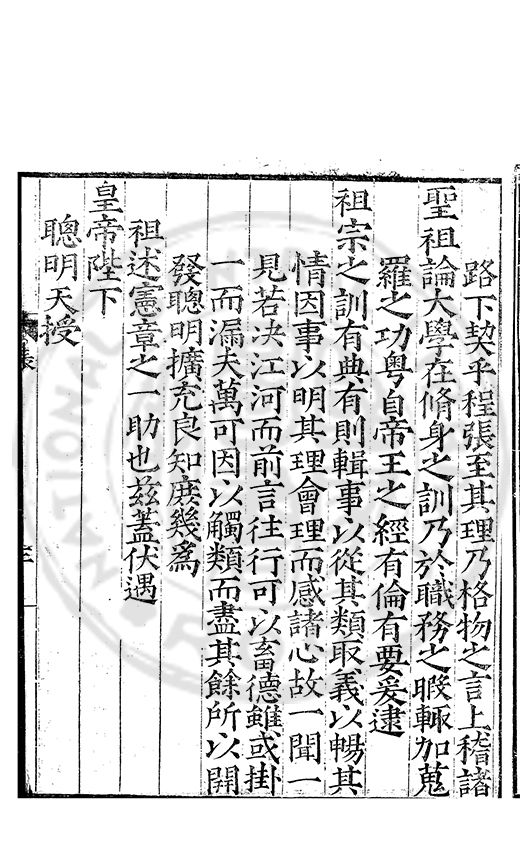 路下契乎程張至其理乃格物之言上稽諸
聖祖論大學在脩身之訓乃於職務之暇輙加蒐
羅之功粤自帝王之經有倫有要爰逮
祖宗之訓有典有則輯事以從其類取義以暢其
情因事以明其理會理而感諸心故一聞一
見若决江河而前言往行可以畜德雖或掛
一而漏夫萬可因以觸類而盡其餘所以開
發聰明擴充良知庻幾爲
祖述憲章之一助也兹蓋伏遇
皇帝陛下
聰明天授
表